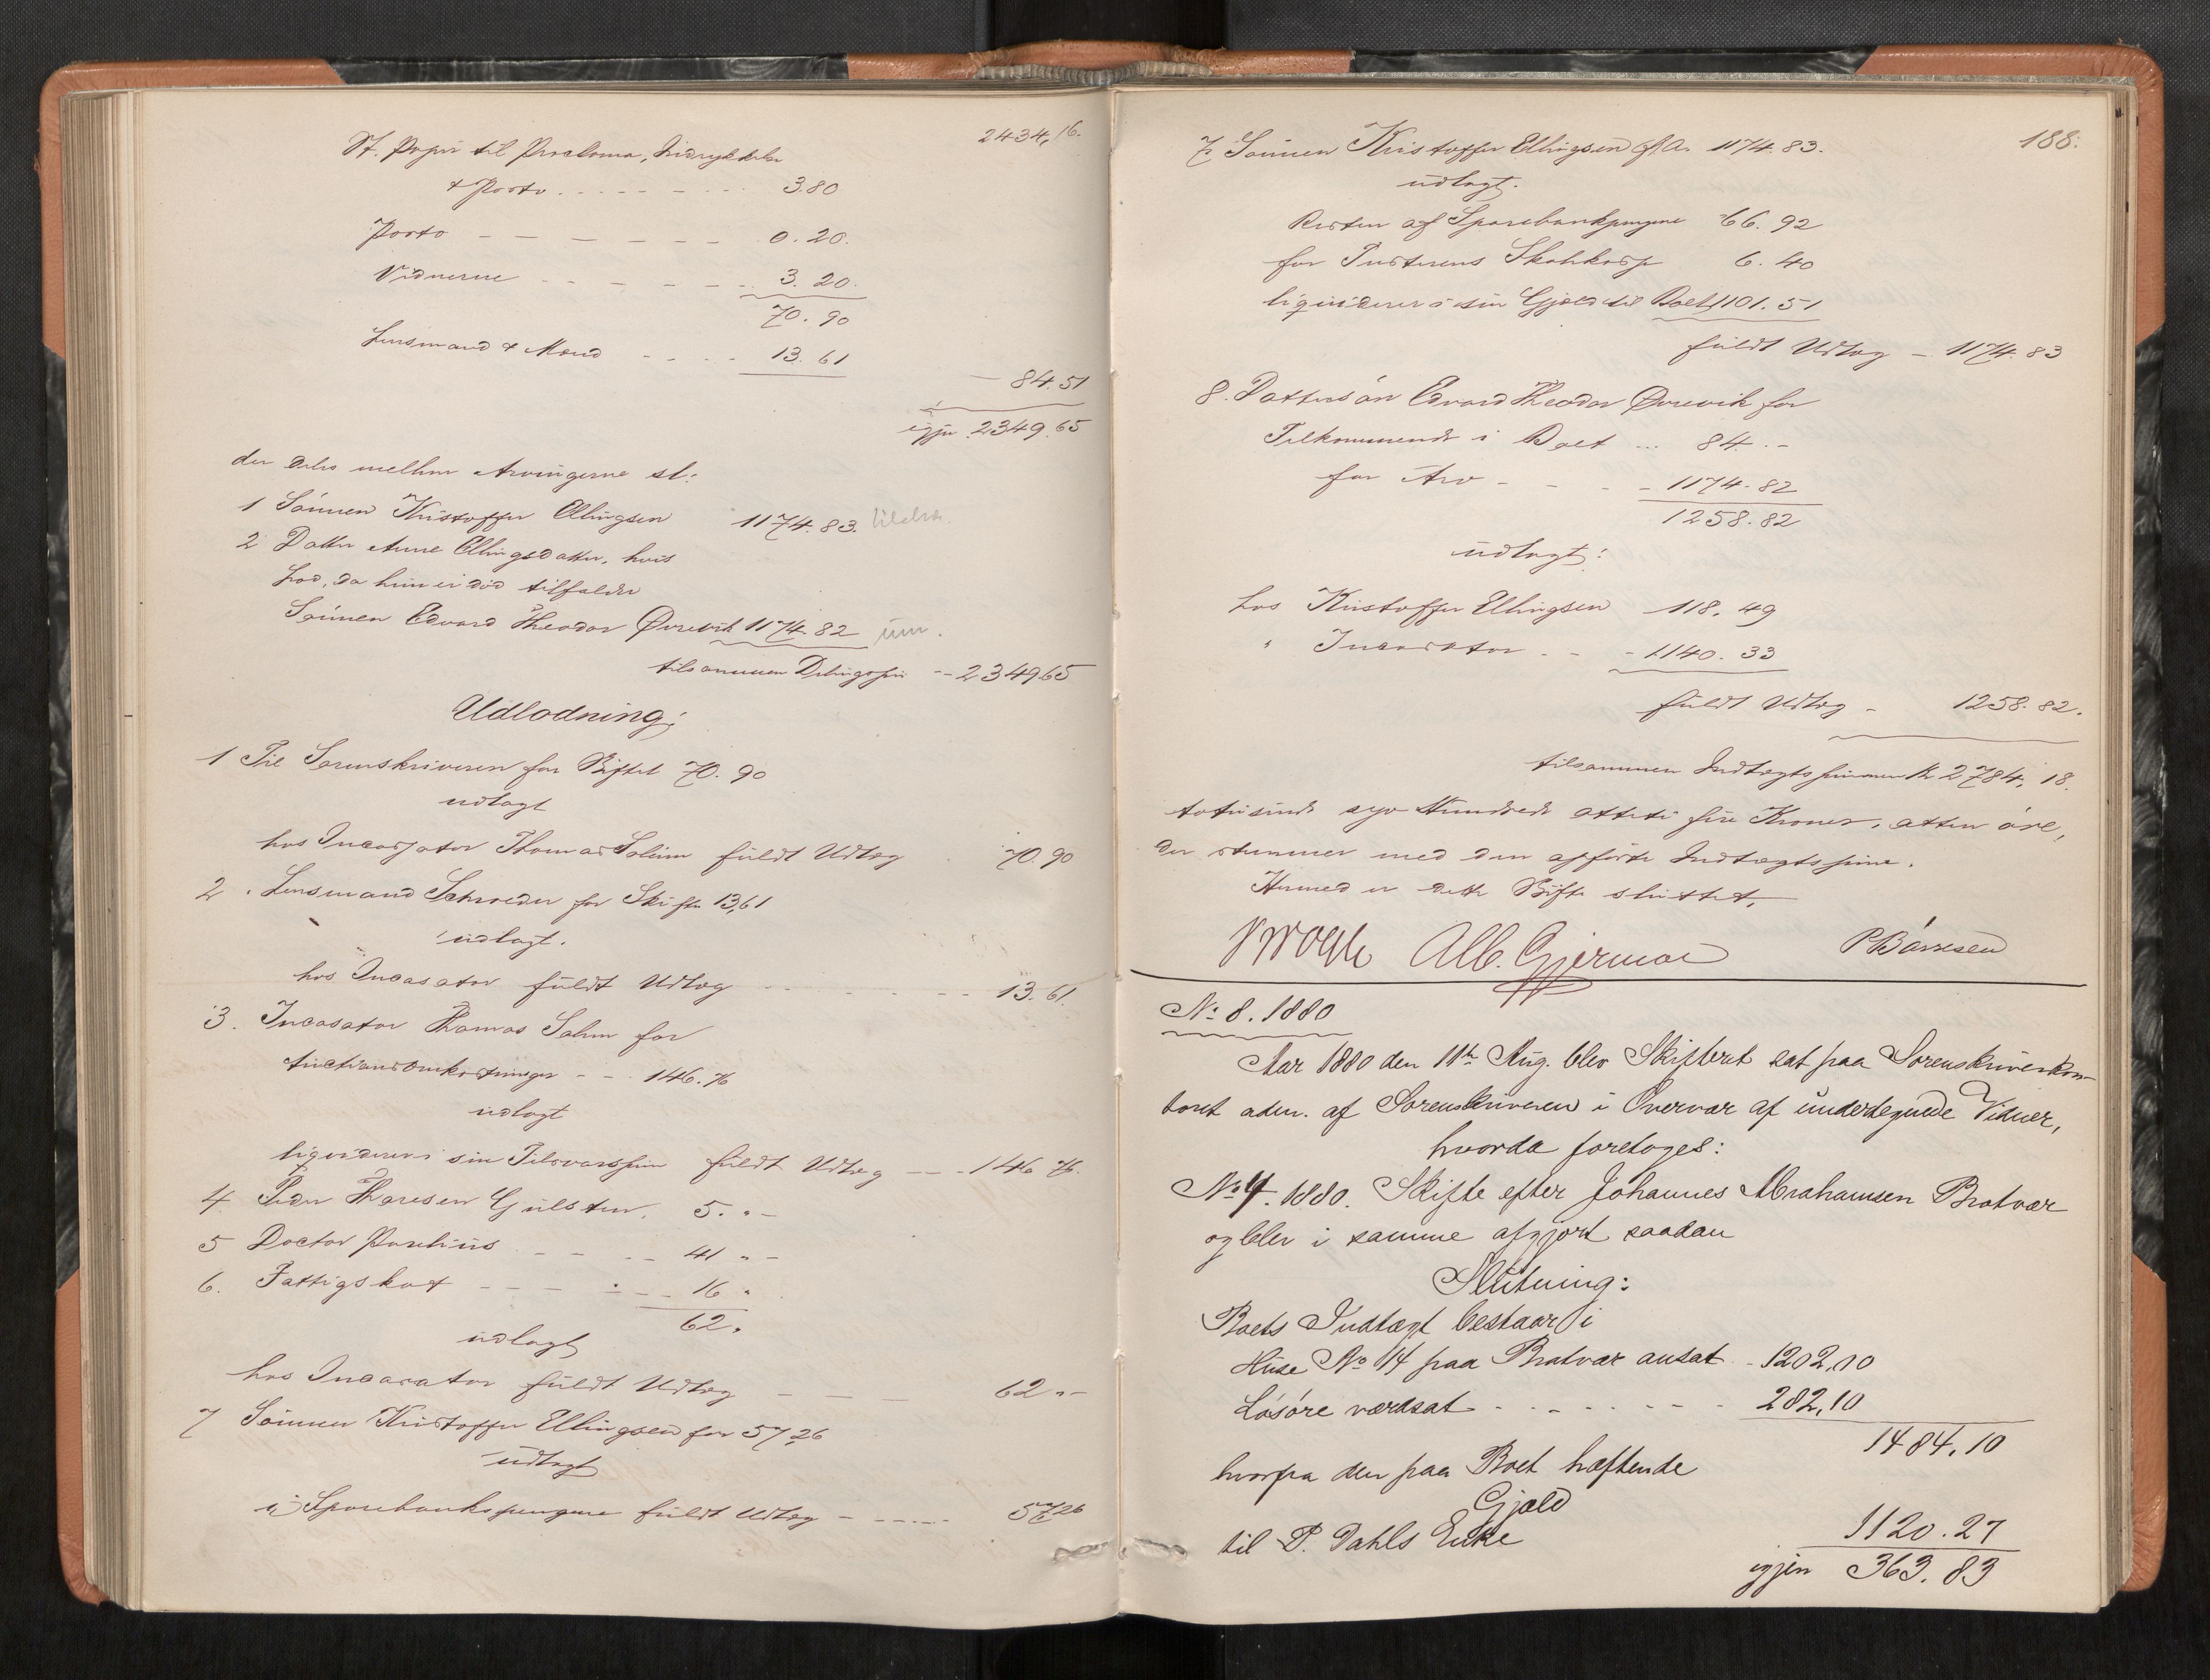 2434,16.
St. Papir til Proclama, Indrykkelse
& Porto . . . . . . 3.80
Porto — — — — — — 0.20.
Vidnerne . . . . . . 3.20.
70.90
Lensmand & Mænd . . . . 13.61
— 84.51
igjen 2349.65
der deles mellem Arvingerne sl:
1 Sönnen Kristoffer Ellingsen 1174.83.
2 Datter Anne Ellingsdatter, hvis
Lod, da hun er död tilfalder
Sönnen Edvard Theodor Övrevik 1174.82
tilsammen Delingssum -- 2349 65
Udlodning;
1 Til Sorenskriveren for Skiftet 70.90
udlagt
hos Incassator Thomas Solem fuldt Udlæg 70.90
2 . Lensmand Schrøder for Skifte 13,61
udlagt.
hos Incasator fuldt Udlæg - - - - - 13.61.
3. Incasator Thomas Solem for
Auctionsomkostninger - - . 146.76
udlagt
liquideres i sin Tilsvarssum fuldt Udlæg — - 146 76.
4. Peder Thoresen Gulsten. 5. " -
5 Doctor Puselius — — — 41 " -
6. Fattigskat - - - - - - 16 "
62 "
udlagt
hos Incasator fuldt Udlæg — — — 62 " -
7 Sönnen Kristoffer Ellingsen for 57,26
udlagt
i Sparebankspengene fuldt Udlæg - ...... 57 26
188.
7. Sönnen Kristoffer Ellingsen f. A. 1174.83.
udlagt.
Resten af Sparebankpengene 66.92
for Pusterens Skatkorp 6.40
liquideres i sin Gjæld til Boet 1101.51
fuldt Udlæg — 1174.83
8. Dattersön Edvard Theodor Övrevik for
Tilkommende i Boet ... 84. -
for Arv - - - - 1174.82
1258.82
udlagt:
hos Kristoffer Ellingsen 118.49
" Incassator - - - 1140.33
fuldt Udlæg - 1258.82.
tilsammen Indtægtssummen Kr 2784,18.
totusinde syv Hundrede otteti fire Kroner, atten öre,
der stemmer med den opförte Indtægtssum.
Hermed er dette Skifte sluttet.
Alb. Gjermoe P Börresen
No 8. 1880
Aar 1880 den 11te Aug. blev Skifteret sat paa Sorenskriverkon-
toret adm. af Sorenskriveren i Overvær af undertegnede Vidner,
hvorda foretoges:
No 4. 1880. Skifte efter Johannes Abrahamsen Bratvær
og blev i samme afgjort saadan
Slutning:
Boets Indtægt bestaar i
Huse No 14 paa Bratvær ansat - 1202,00
Lösöre værdsat . - . - . - - - 282,10
1484.10
hvorfra den paa Boet hæftende
Gjæld
til P. Dahls Enke 1120.27
igjen 363.83